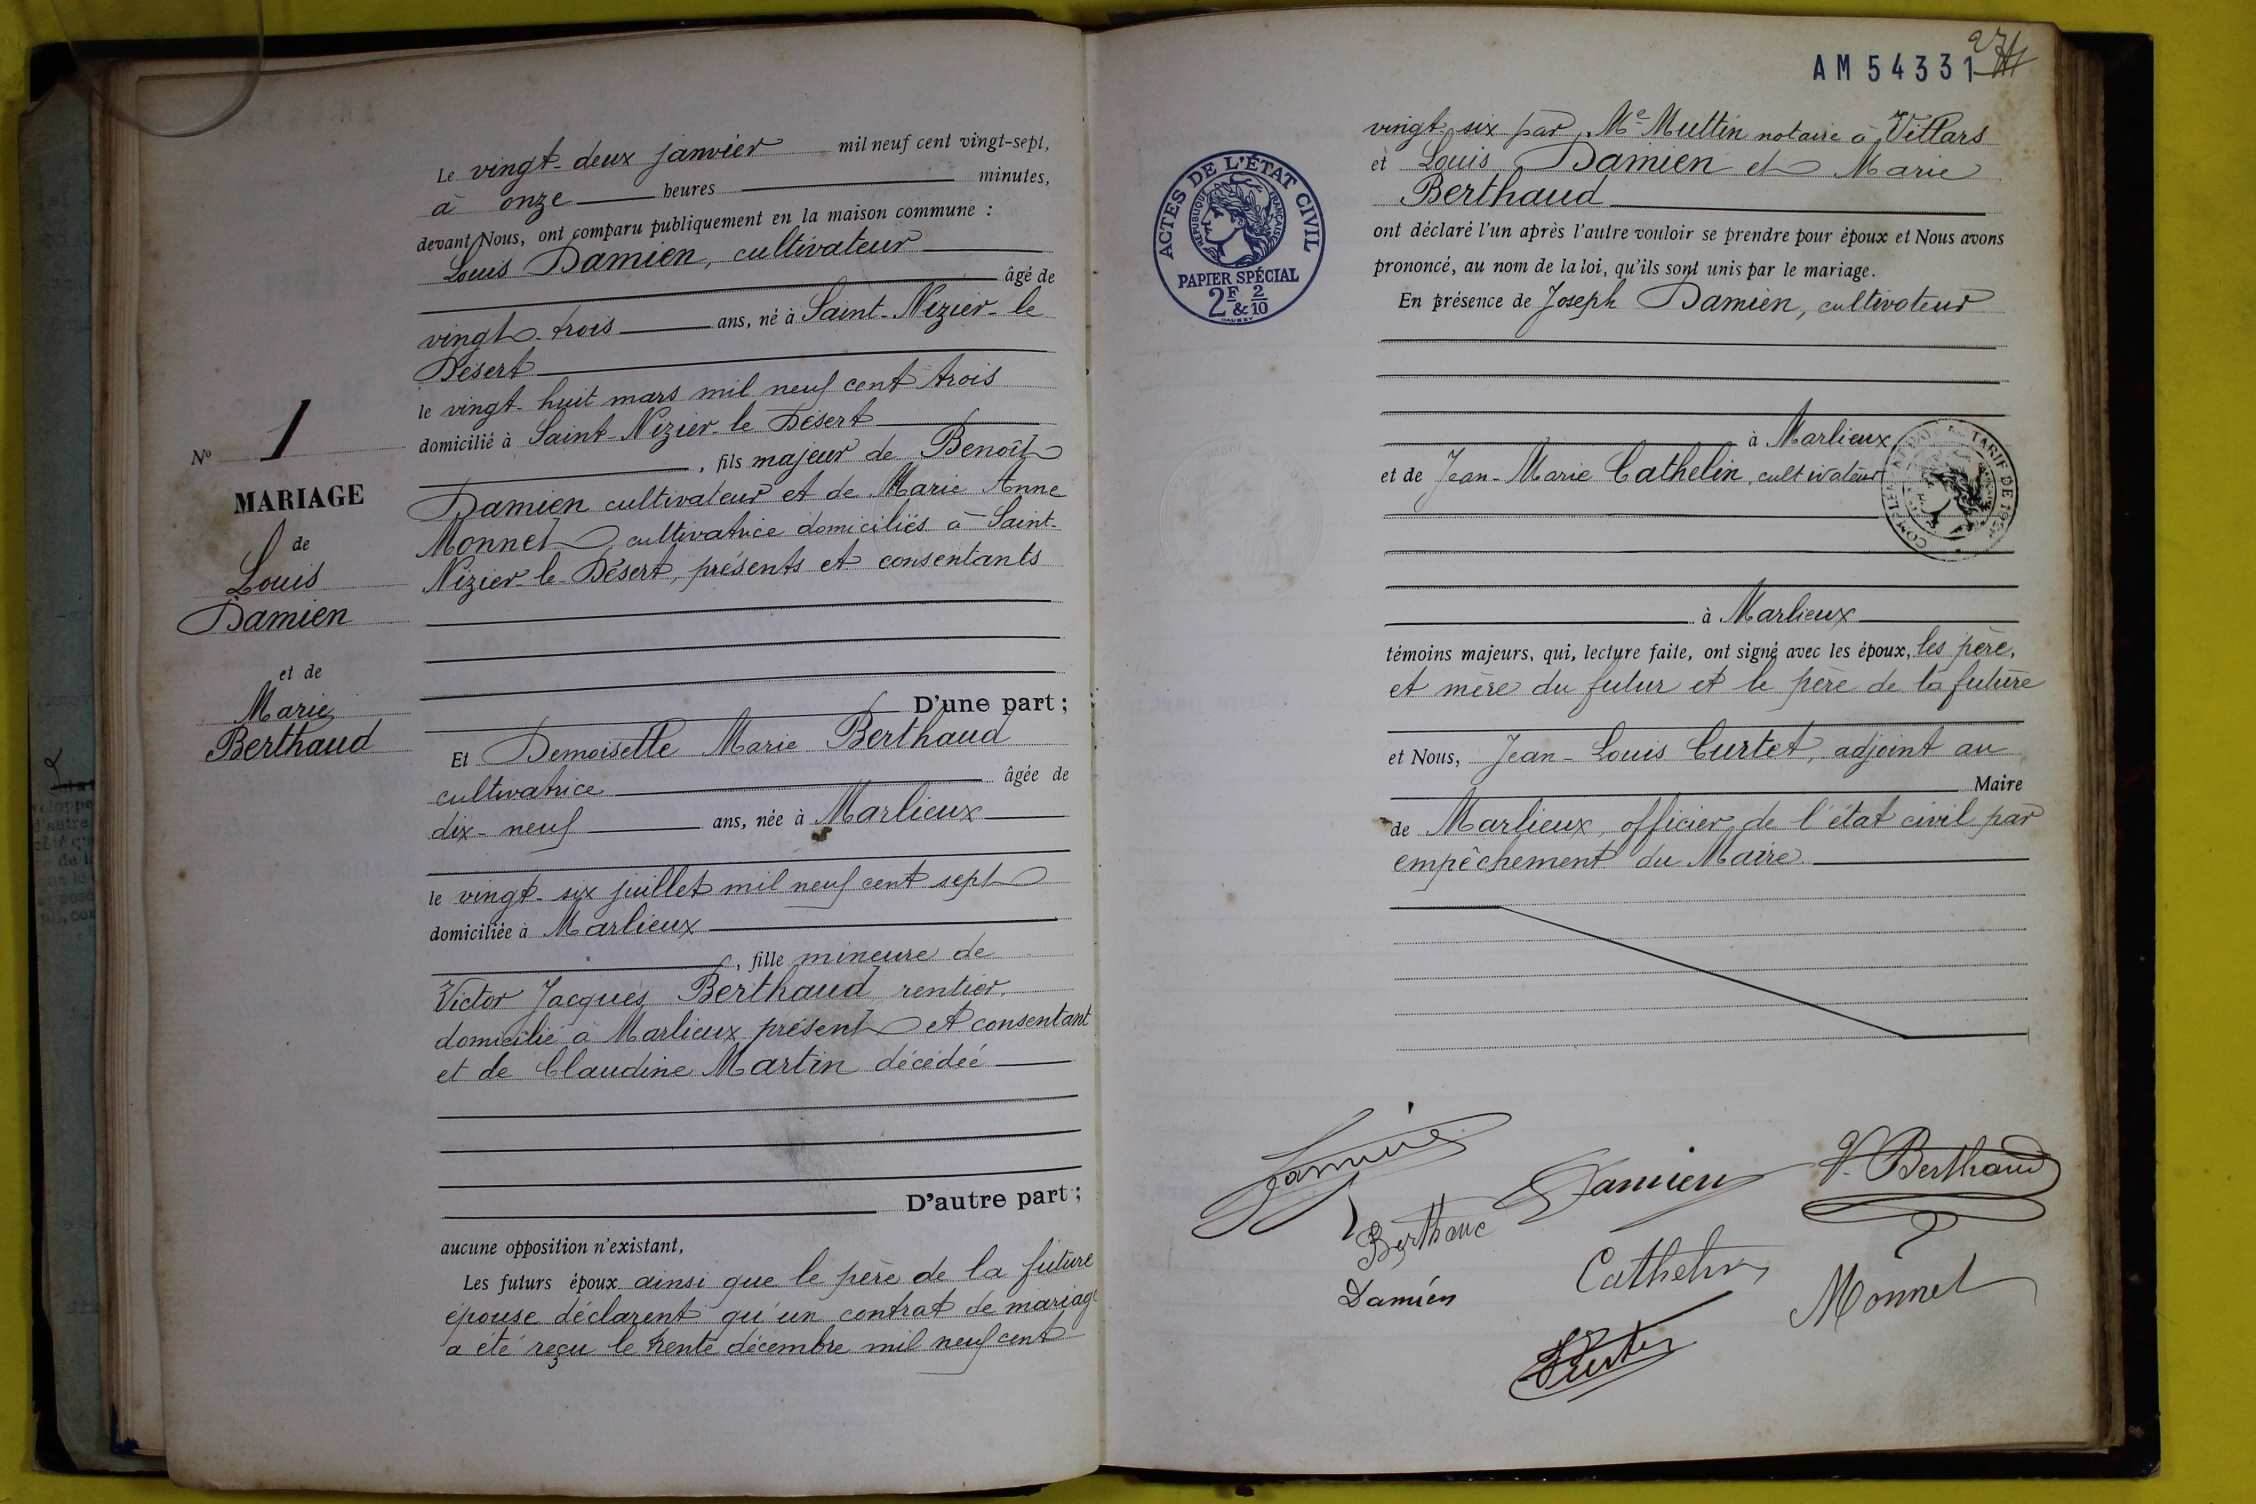 Le vingt-deux janvier mil neuf cent vingt-sept,
à onze heures minutes,
devant Nous, ont comparu publiquement en la maison commune :
Louis Damien, cultivateur
âgé de
vingt-trois ans, né à Saint-Nizier-le
Désert
le vingt-huit mars mil neuf cent trois
domicilié à Saint-Nizier-le Désert
, fils majeur de Benoît
Damien cultivateur et de Marie Anne
Monnet cultivatrice domiciliés à Saint-
Nizier-le-Désert, présents et consentants
D'une part ;
Et Demoiselle Marie Berthaud
cultivatrice âgée de
dix-neuf ans, née à Marlieux
le vingt-six juillet mil neuf cent sept
domiciliée à Marlieux
, fille mineure de
Victor Jacques Berthaud rentier,
domicilié à Marlieux présent et consentant
et de Claudine Martin décédée
D'autre part ;
aucune opposition n'existant,
Les futurs époux ainsi que le père de la future
épouse déclarent qu'un contrat de mariage
a été reçu le trente décembre mil neuf cent
N° 1
MARIAGE
de
Louis
Damien
et de
Marie
Berthaud
AM 54331
ACTES DE L'ÉTAT CIVIL
RÉPUBLIQUE FRANÇAISE
PAPIER SPÉCIAL
2F & 2/10
vingt-six par Me Muttin notaire à Villars
et Louis Damien et Marie
Berthaud
ont déclaré l'un après l'autre vouloir se prendre pour époux et Nous avons
prononcé, au nom de la loi, qu'ils sont unis par le mariage.
En présence de Joseph Damien, cultivateur
à Marlieux
et de Jean-Marie Cathelin, cultivateur
TARIF DE
à Marlieux
témoins majeurs, qui, lecture faite, ont signé avec les époux, les père,
et mère du futur et le père de la future
et Nous, Jean-Louis Curtet, adjoint au
Maire
de Marlieux, officier de l'état civil par
empêchement du Maire
Damien
Damien
V. Berthaud
Berthaud
Cathelin
Damien
Monnet
Curtet